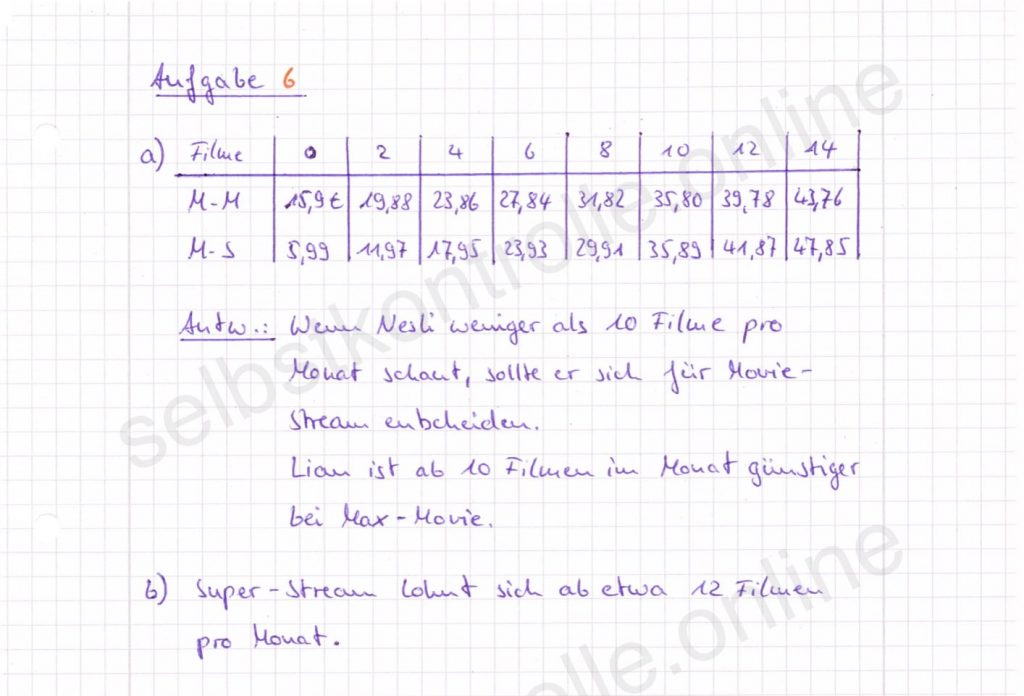 Aufgabe 6
a) Filme 0 2 4 6 8 10 12 14
M-M 15,9€ 19,88 23,86 27,84 31,82 35,80 39,78 43,76
M-S 5,99 11,97 17,95 23,93 29,91 35,89 41,87 47,85
Antw.: Wenn Nesli weniger als 10 Filme pro
Monat schaut, sollte er sich für Movie-
Stream entscheiden.
Lian ist ab 10 Filmen im Monat günstiger
bei Max-Movie.
b) Super-Stream lohnt sich ab etwa 12 Filmen
pro Monat.
selbstkontrolle.online
olle.online